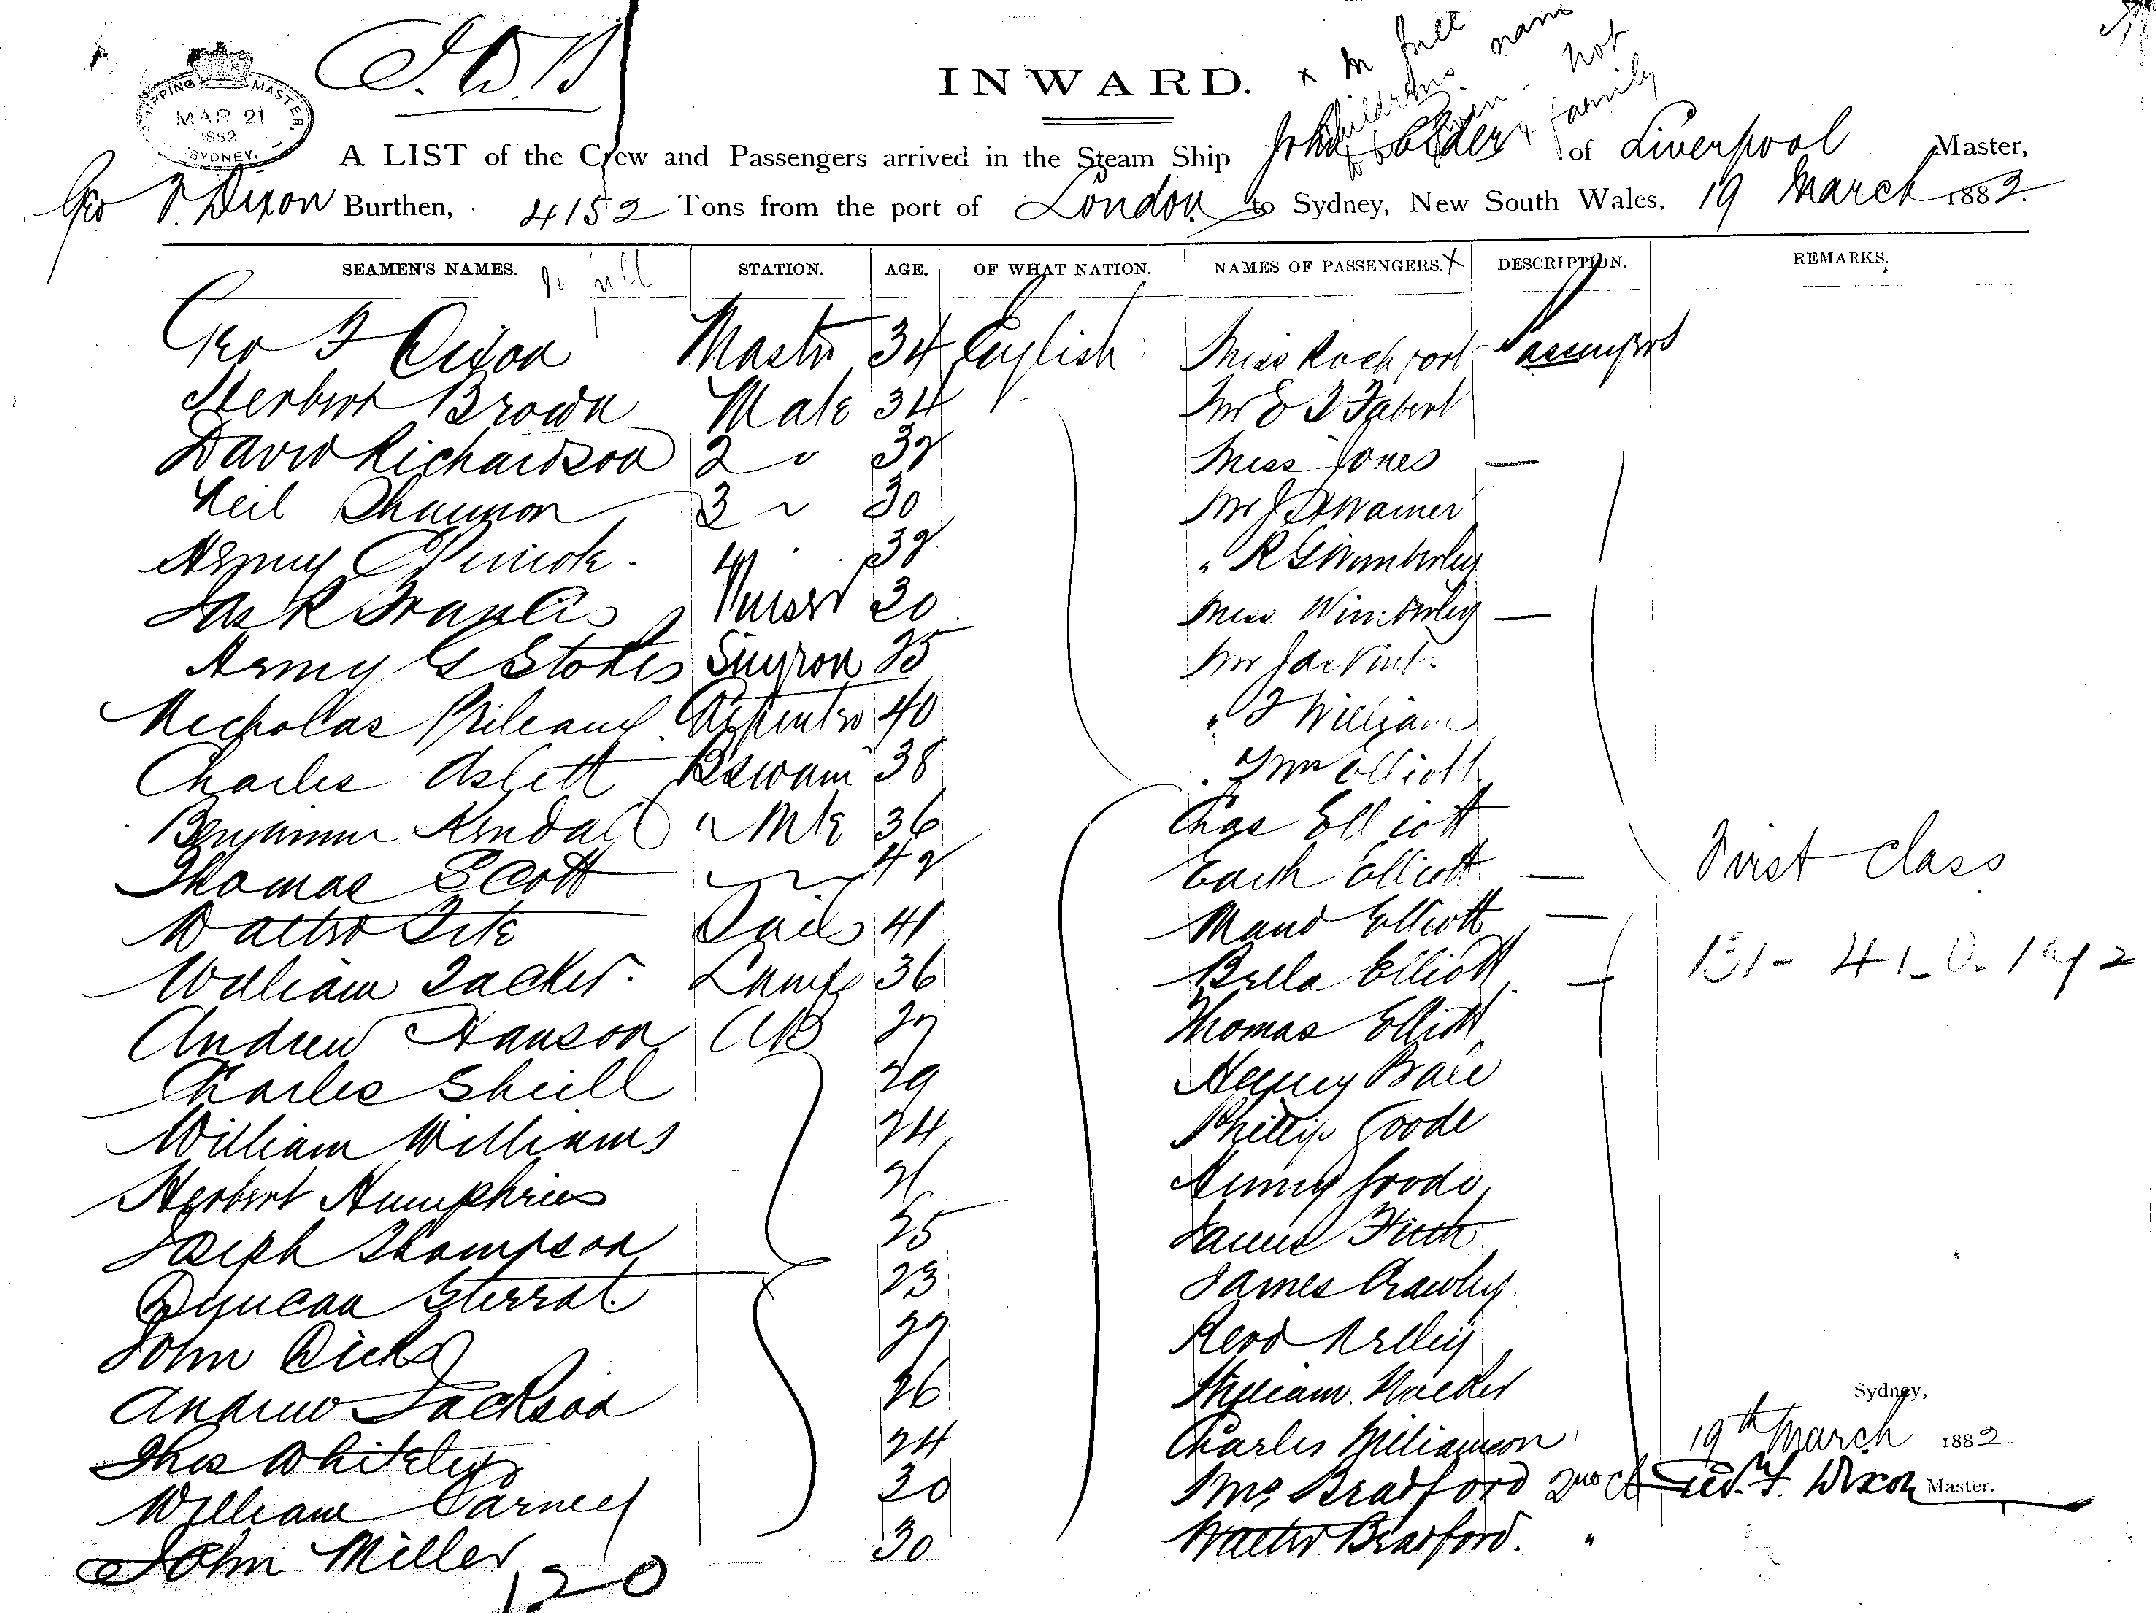 J.D.B
SHIPPING MASTER.
MAR 21
1882
SYDNEY.
INWARD.
x In full
Childrens name
not
x family
A LIST of the Crew and Passengers arrived in the Steam Ship John Elder of Liverpool Master,
Geo F. Dixon Burthen, 4152 Tons from the port of London to Sydney, New South Wales, 19 March 1882.
SEAMEN'S NAMES. In full STATION. AGE. OF WHAT NATION. NAMES OF PASSENGERS. x DESCRIPTION. REMARKS.
Geo F Dixon Master 34 English Miss Passengers
Herbert Brown Mate 34 Mr E
David Richardson 2 " 32 Miss Jones —
Neil Shannon 3 " 30 Mr J Warner
Henry 4 32 " R G Wimberley
Jas R Franklis Purser 30 Miss Wimberley —
Henry G Stokes Surgeon 25 Mr
Nicholas Carpenter 40 " F William
Charles Aslett Bswain 38 " Elliott
Benjamin Kendall " Mte 36 Chas Elliott
Thomas Scott 42 Elliott — First class
Walter Tite Sails 41 Maud Elliott —
William Tacker Lamps 36 Bella Elliott —
Andrew Hanson AB 27 Thomas Elliott
Charles Sheill 29 Henry
William Williams 24 Phillip Goode
Herbert Humphries 21 Henry Goode
Joseph Thompson 25 Firth
Duncan Sterrat 23 James Crawley
John Dicks 22 Revd Kelley
Andrew Jackson 26 William Sydney,
Thos Whiteley 24 Charles Williamson 19th March 1882
William Carney 30 Mrs Bradford 2nd Cl Geo. F. Dixon Master.
John Miller 30 Walter Bradford. "
120